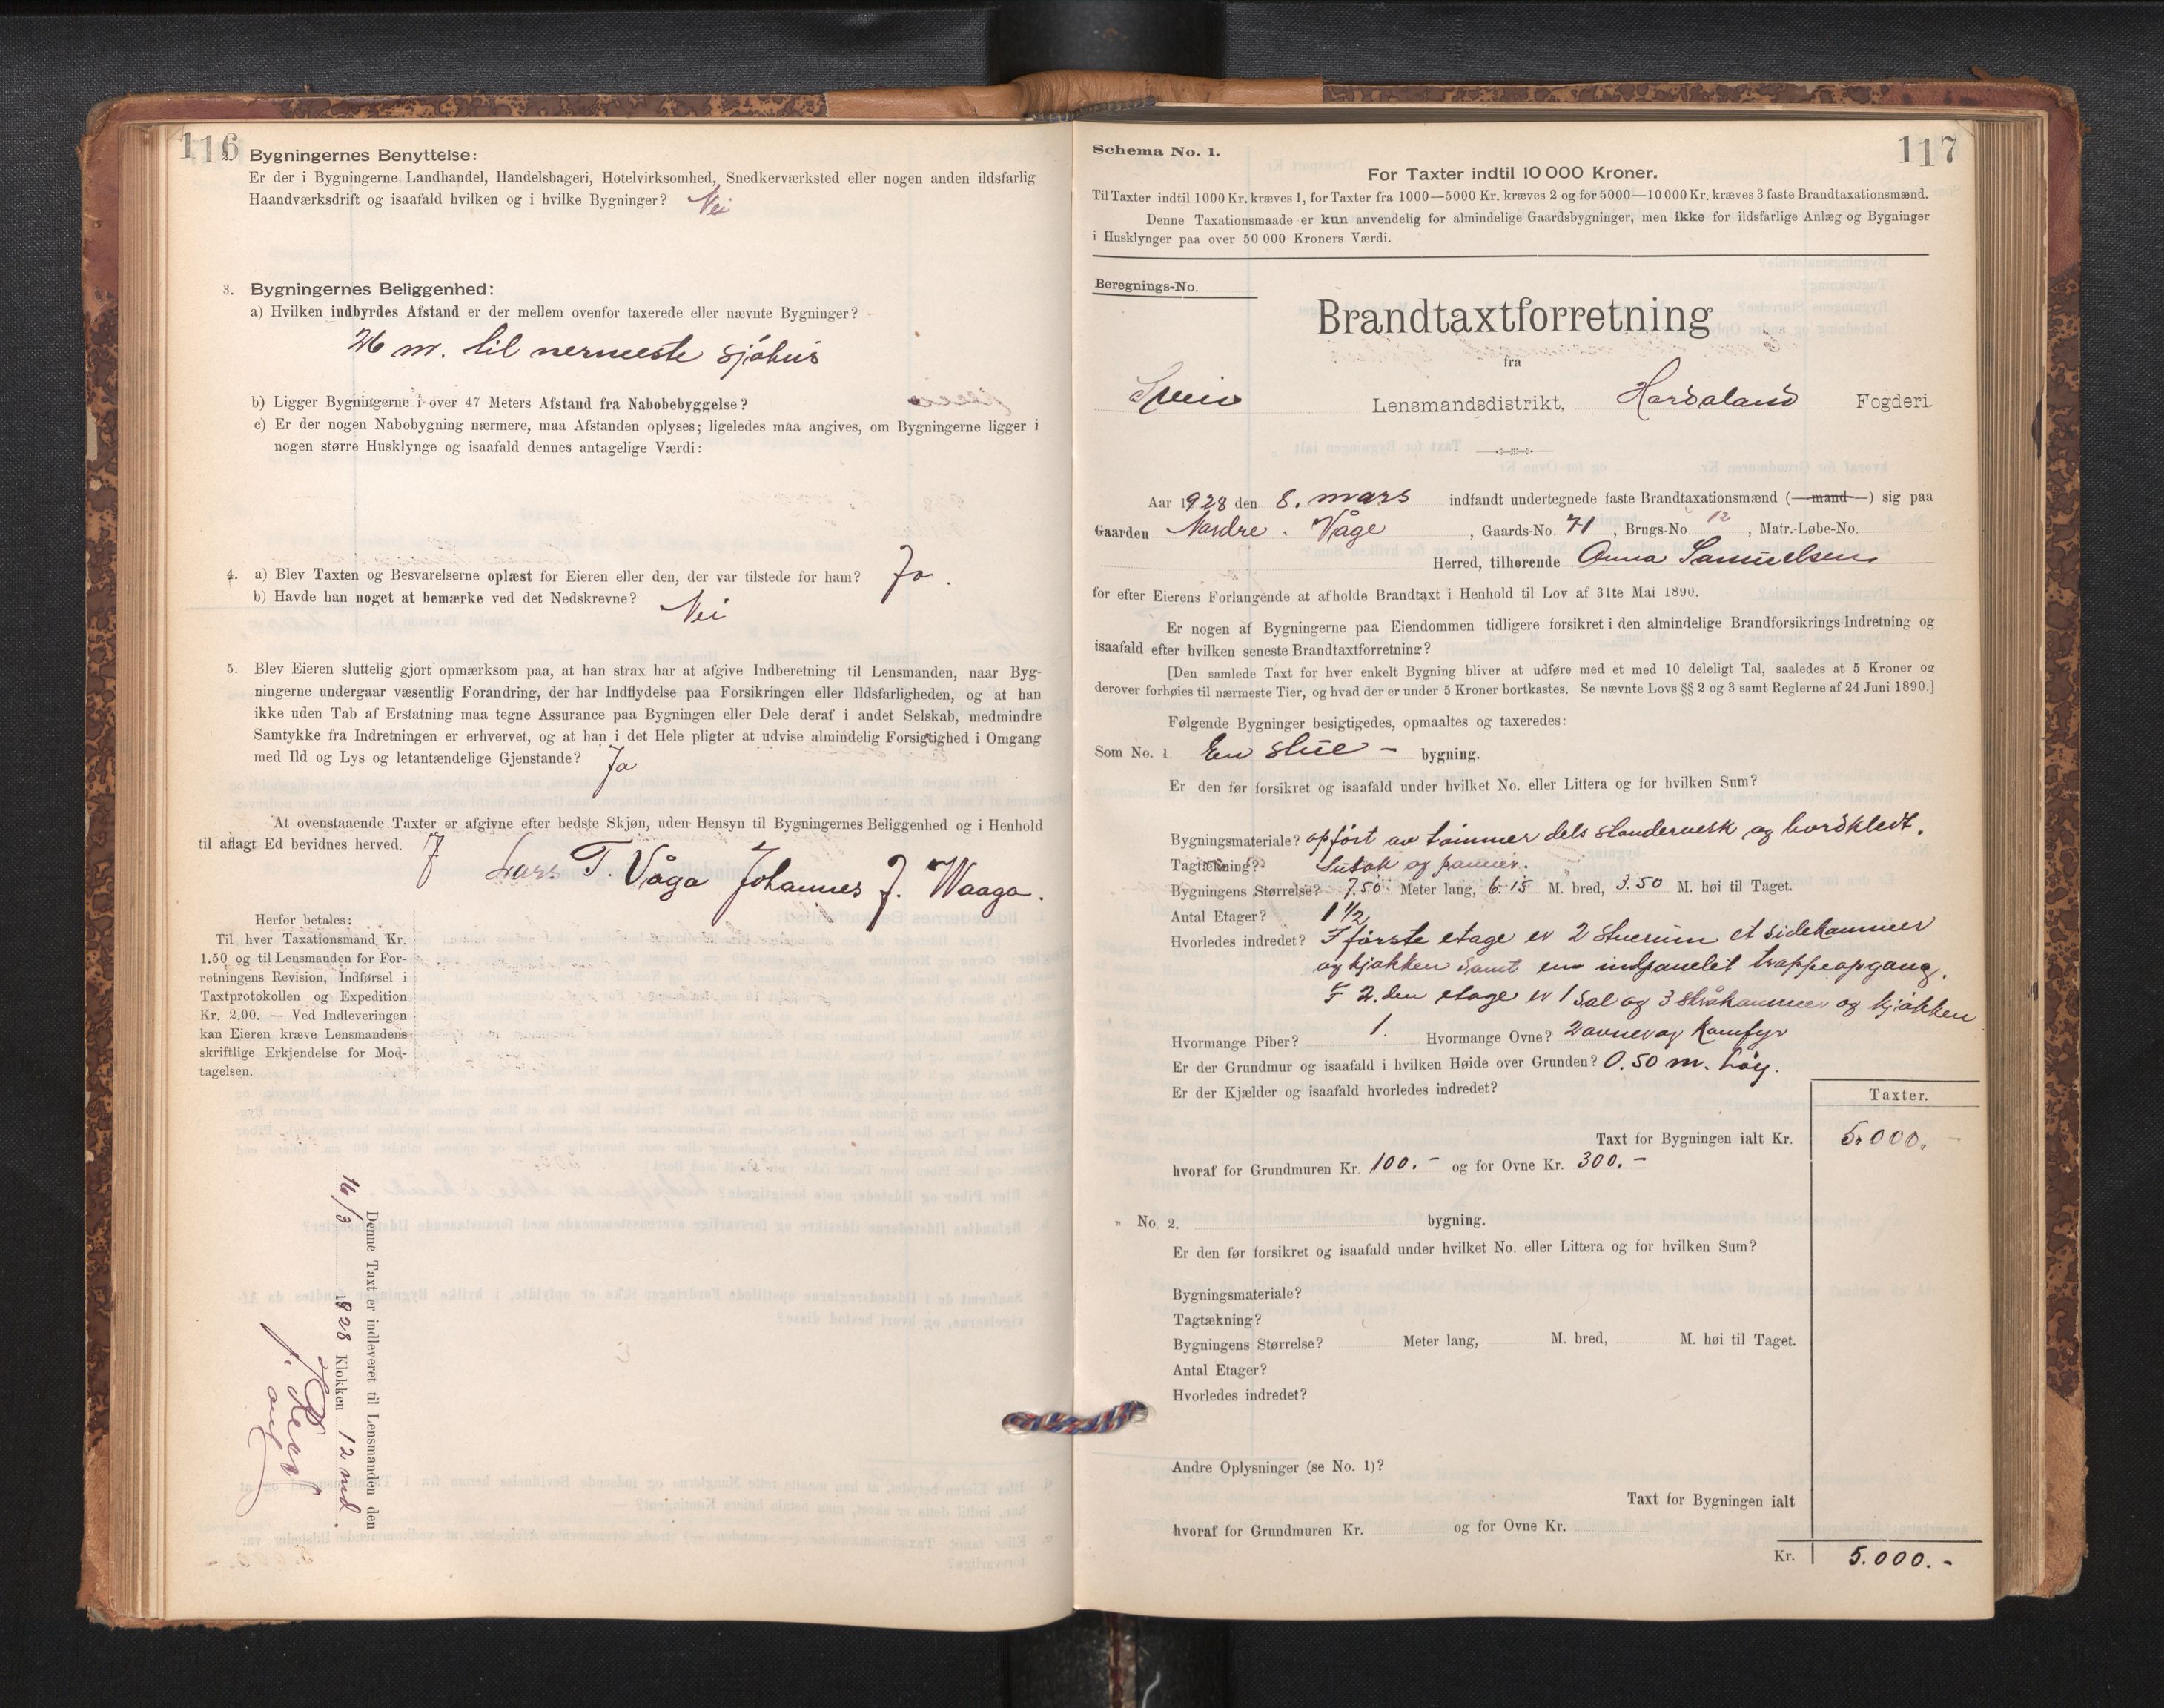 116
2. Bygningernes Benyttelse:
Er der i Bygningerne Landhandel, Handelsbageri, Hotelvirksomhed, Snedkerværksted eller nogen anden ildsfarlig
Haandværksdrift og isaafald hvilken og i hvilke Bygninger? Nei
3. Bygningernes Beliggenhed:
a) Hvilken indbyrdes Afstand er der mellem ovenfor taxerede eller nævnte Bygninger?
26 m. til nermeste sjøhus
b) Ligger Bygningerne i over 47 Meters Afstand fra Nabobebyggelse?
c) Er der nogen Nabobygning nærmere, maa Afstanden oplyses; ligeledes maa angives, om Bygningerne ligger i
nogen større Husklynge og isaafald dennes antagelige Værdi:
4. a) Blev Taxten og Besvarelserne oplæst for Eieren eller den, der var tilstede for ham? Ja.
b) Havde han noget at bemærke ved det Nedskrevne? Nei
5. Blev Eieren sluttelig gjort opmærksom paa, at han strax har at afgive Indberetning til Lensmanden, naar Byg-
ningerne undergaar væsentlig Forandring, der har Indflydelse paa Forsikringen eller Ildsfarligheden, og at han
ikke uden Tab af Erstatning maa tegne Assurance paa Bygningen eller Dele deraf i andet Selskab, medmindre
Samtykke fra Indretningen er erhvervet, og at han i det Hele pligter at udvise almindelig Forsigtighed i Omgang
med Ild og Lys og letantændelige Gjenstande? Ja
At ovenstaaende Taxter er afgivne efter bedste Skjøn, uden Hensyn til Bygningernes Beliggenhed og i Henhold
til aflagt Ed bevidnes herved.
Lars T. Våga Johannes J. Waaga.
Herfor betales:
Til hver Taxationsmand Kr.
1.50 og til Lensmanden for For-
retningens Revision, Indførsel i
Taxtprotokollen og Expedition
Kr. 2.00. — Ved Indleveringen
kan Eieren kræve Lensmandens
skriftlige Erkjendelse for Mod-
tagelsen.
Denne Taxt er indleveret til Lensmanden den
16/3 1928 Klokken 12 md.
117
Schema No. 1.
For Taxter indtil 10 000 Kroner.
Til Taxter indtil 1000 Kr. kræves 1, for Taxter fra 1000—5000 Kr. kræves 2 og for 5000—10000 Kr. kræves 3 faste Brandtaxationsmænd.
Denne Taxationsmaade er kun anvendelig for almindelige Gaardsbygninger, men ikke for ildsfarlige Anlæg og Bygninger
i Husklynger paa over 50 000 Kroners Værdi.
Beregnings-No.
Brandtaxtforretning
fra
Sveio Lensmandsdistrikt, Hordaland Fogderi.
Aar 1928 den 8. mars indfandt undertegnede faste Brandtaxationsmænd (—mand—) sig paa
Gaarden Nordre . Våge , Gaards-No. 71 , Brugs-No 12 , Matr.-Løbe-No.
Herred, tilhørende Anna Samuelsen
for efter Eierens Forlangende at afholde Brandtaxt i Henhold til Lov af 31te Mai 1890.
Er nogen af Bygningerne paa Eiendommen tidligere forsikret i den almindelige Brandforsikrings-Indretning og
isaafald efter hvilken seneste Brandtaxtforretning?
[Den samlede Taxt for hver enkelt Bygning bliver at udføre med et med 10 deleligt Tal, saaledes at 5 Kroner og
derover forhøies til nærmeste Tier, og hvad der er under 5 Kroner bortkastes. Se nævnte Lovs §§ 2 og 3 samt Reglerne af 24 Juni 1890.]
Følgende Bygninger besigtigedes, opmaaltes og taxeredes:
Som No. 1. En stue - bygning.
Er den før forsikret og isaafald under hvilket No. eller Littera og for hvilken Sum?
Bygningsmateriale? opført av tømmer dels standerverk og bordkledt.
Tagtækning? Sutak og panner.
Bygningens Størrelse? 7.50 Meter lang, 6.15 M. bred, 3.50 M. høi til Taget.
Antal Etager? 1 1/2
Hvorledes indredet? I første etage er 2 stuerum et sidekammer
og kjøkken samt en indpanelet trappeopgang.
I 2.den etage er 1 sal og 3 kammer og kjøkken
Hvormange Piber? 1. Hvormange Ovne? 2 ovner og komfyr
Er der Grundmur og isaafald i hvilken Høide over Grunden? 0.50 m. høy.
Er der Kjælder og isaafald hvorledes indredet?
Taxter.
Taxt for Bygningen ialt Kr. 5.000.-
hvoraf for Grundmuren Kr. 100.- og for Ovne Kr. 300.-
" No. 2. bygning.
Er den før forsikret og isaafald under hvilket No. eller Littera og for hvilken Sum?
Bygningsmateriale?
Tagtækning?
Bygningens Størrelse? Meter lang, M. bred, M. høi til Taget.
Antal Etager?
Hvorledes indredet?
Andre Oplysninger (se No. 1)?
Taxt for Bygningen ialt
hvoraf for Grundmuren Kr. og for Ovne Kr.
Kr. 5.000.-